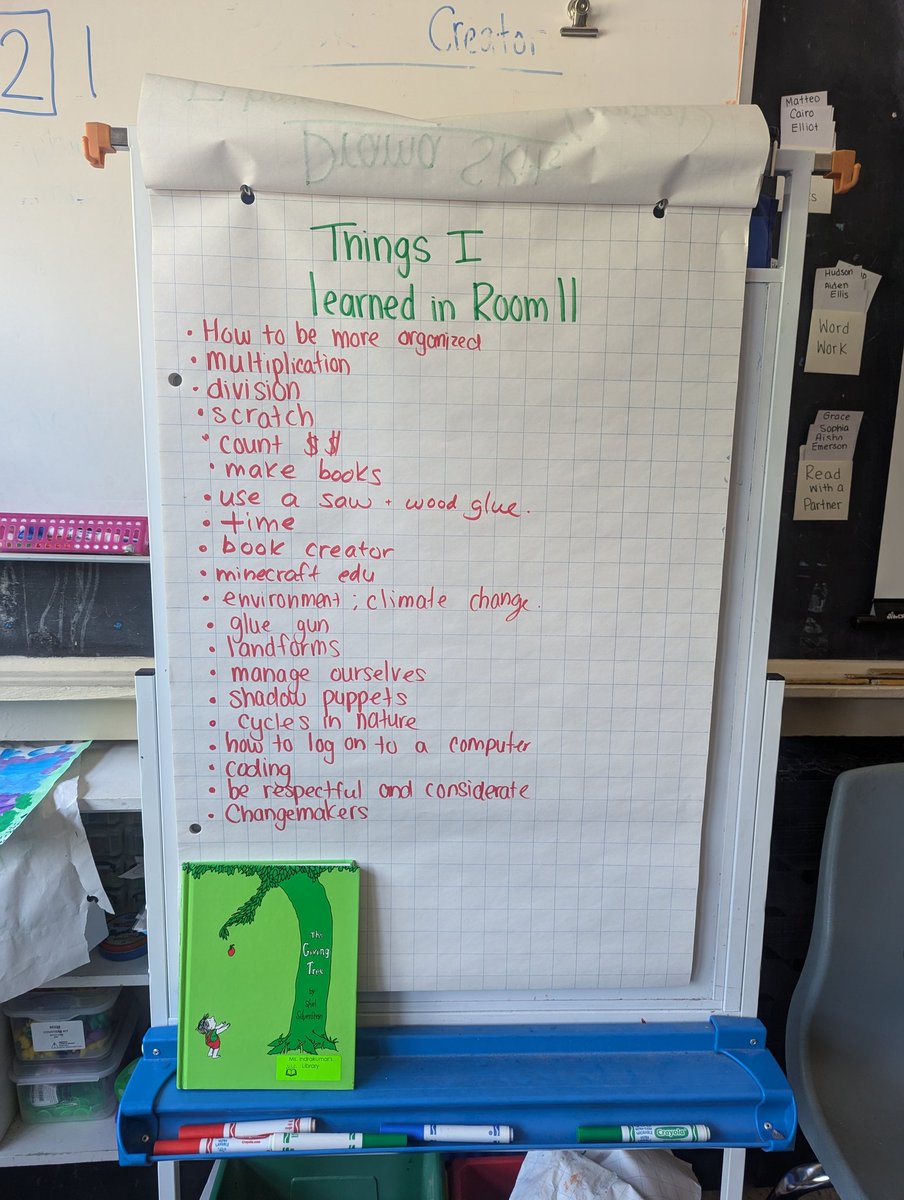 21
Creator
Drama Skit
Things I
learned in Room 11
• How to be more organized
• multiplication
• division
• scratch
• count $$
• make books
• use a saw + wood glue.
• time
• book creator
• minecraft edu
• environment ; climate change.
• glue gun
• landforms
• manage ourselves
• shadow puppets
• cycles in nature
• how to log on to a computer
• coding
• be respectful and considerate
• Changemakers
The
Giving
Tree
by
Shel
Silverstein
Ms. Indrakumar's
Library
Crayola
Matteo
Cairo
Elliot
Hudson
Aiden
Ellis
Word
Work
Grace
Sophia
Aisha
Emerson
Read
with a
Partner